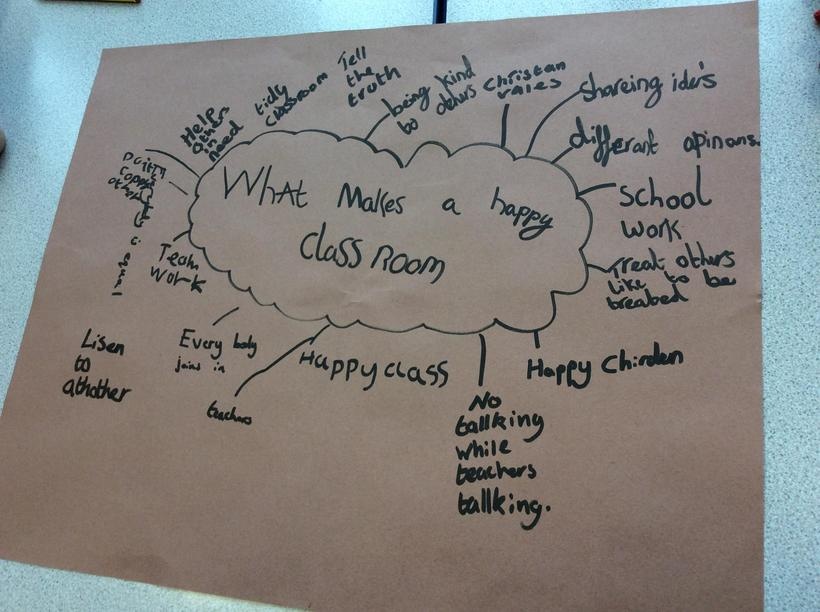 What Makes a happy
Class Room
Help
others
in
need
tidy
classroom
Tell
the
truth
being kind
to others
Christian
vales
shareing ider's
different apinons.
School
work
Treat others
like to be
treated
Happy Chirden
No
tallking
while
teachers
tallking.
Happy class
teachers
Every body
joins in
Lisen
to
athother
Team
work